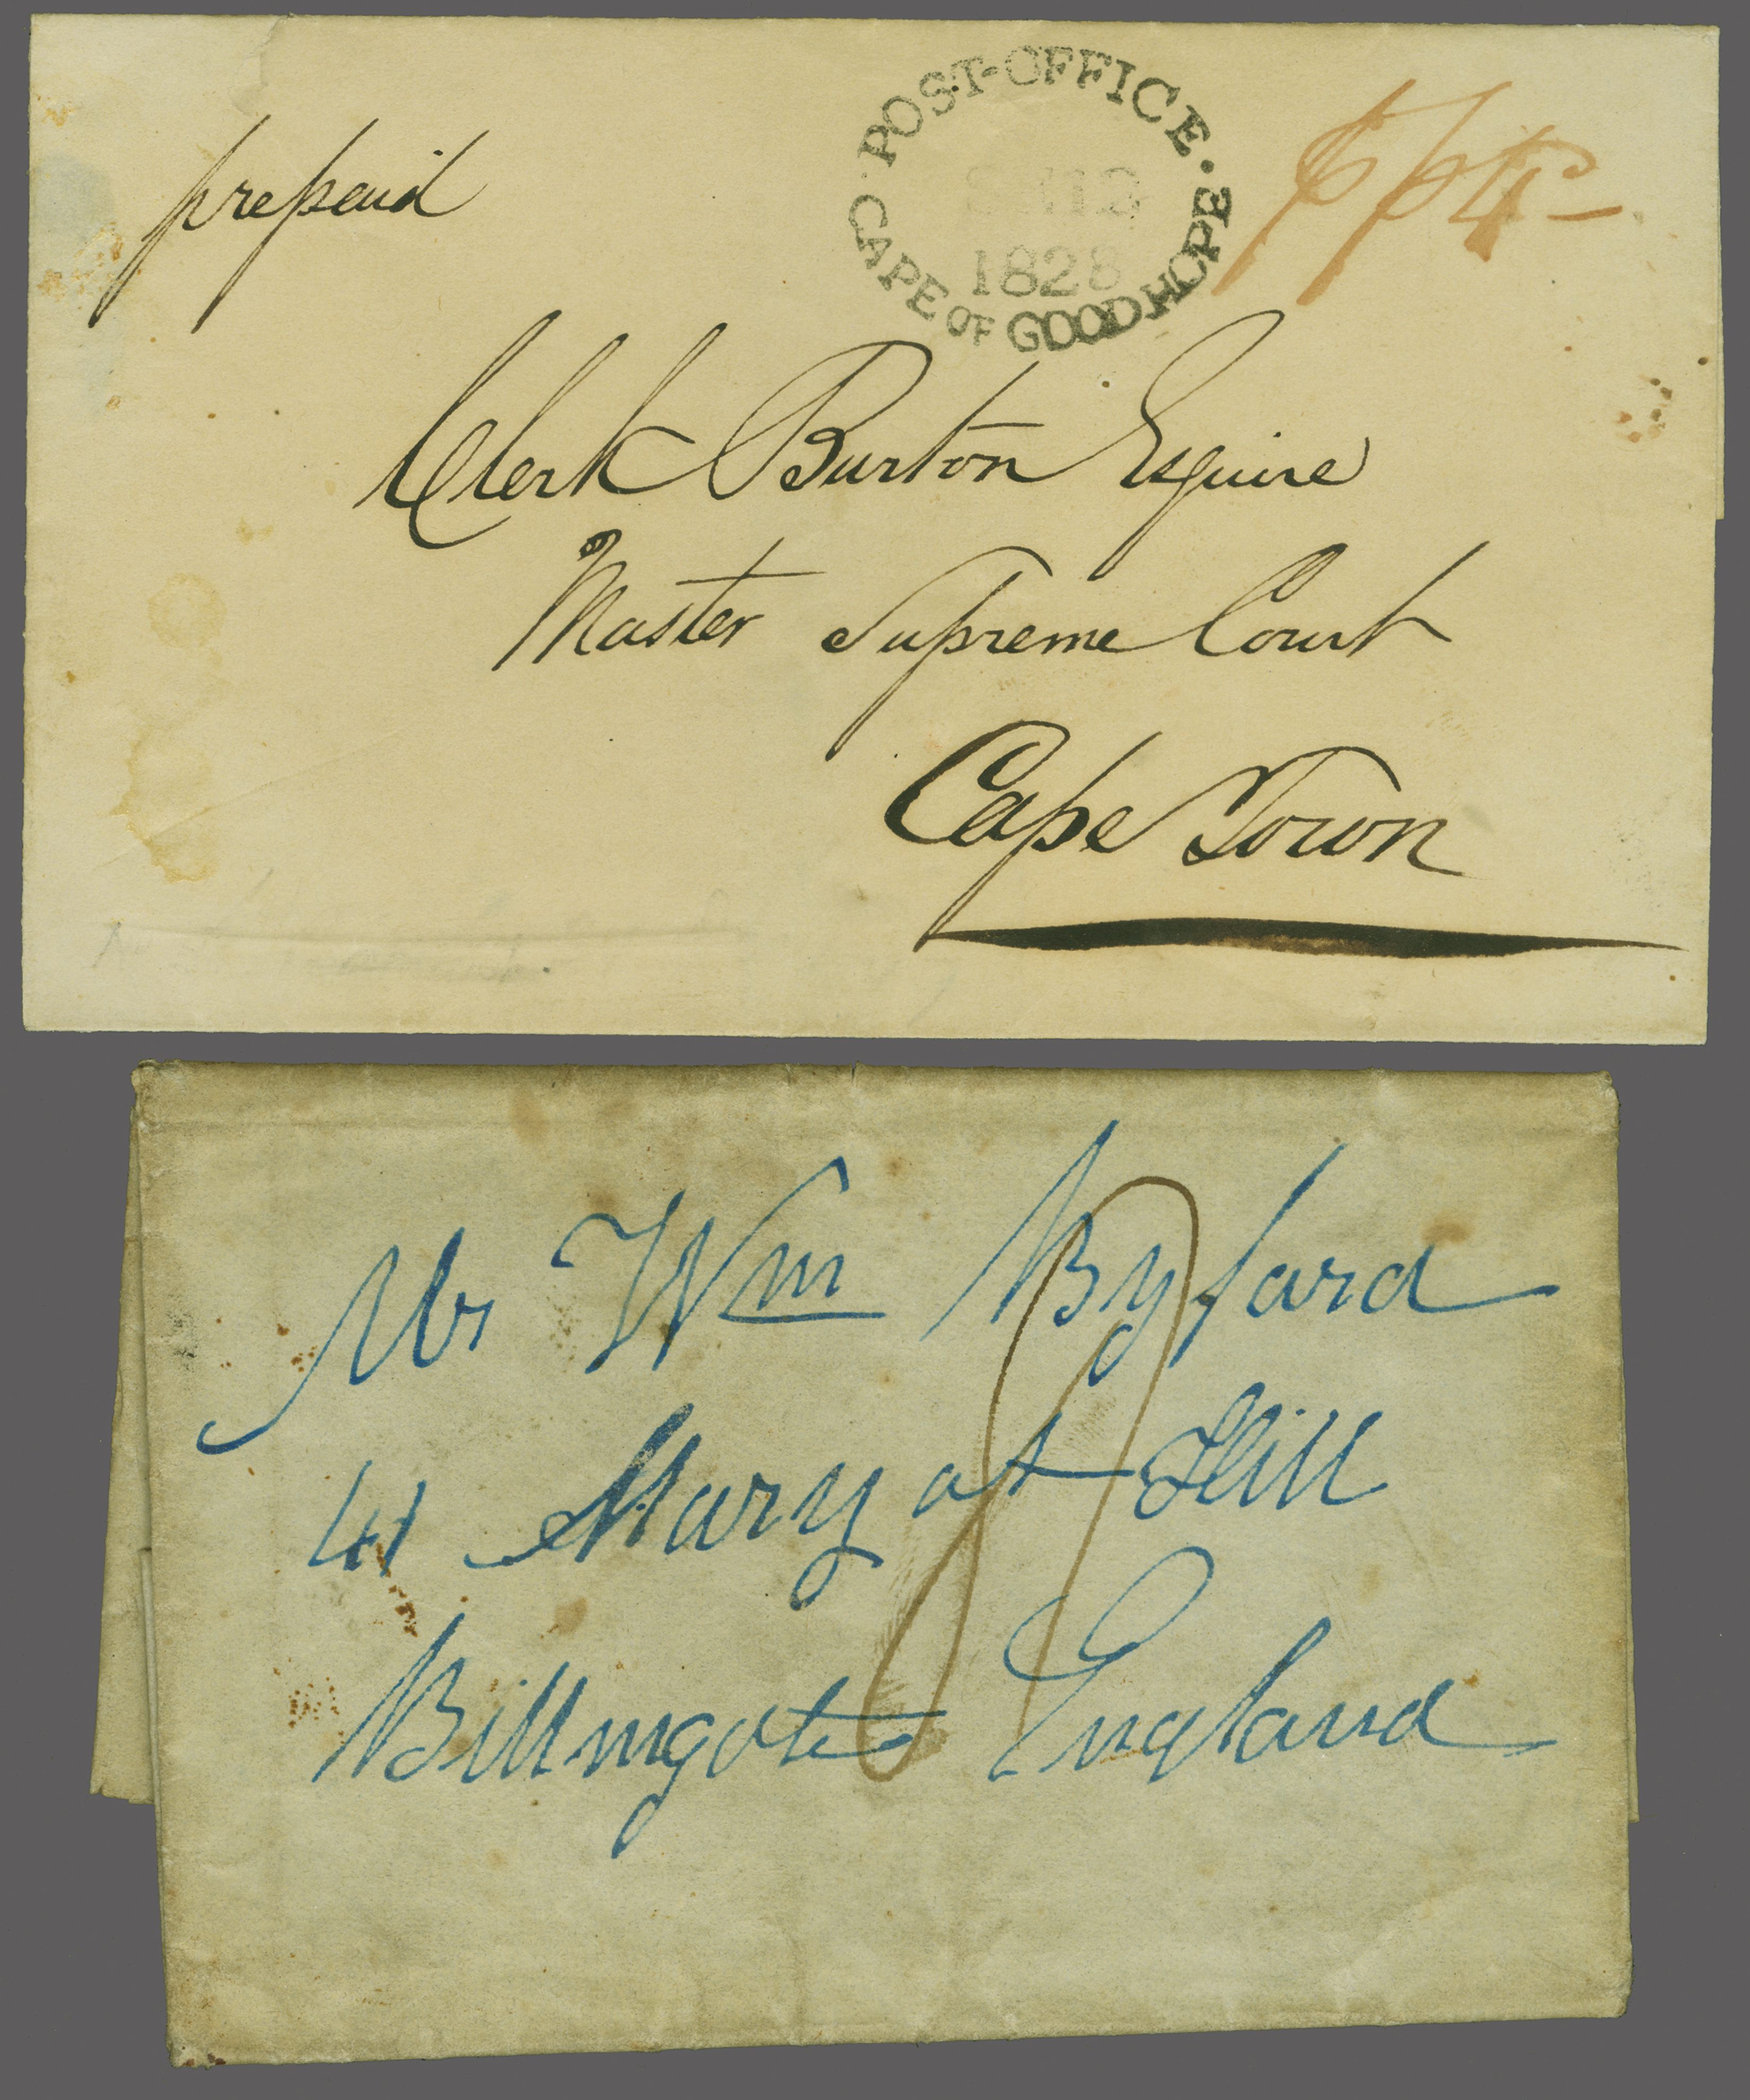 prepaid
POST-OFFICE.
1828
CAPE OF GOOD HOPE
pp 4
Clerk Burton Esquire
Master Supreme Court
Cape Town
Mr Wm Byford
41 Mary at Hill
Billingate England